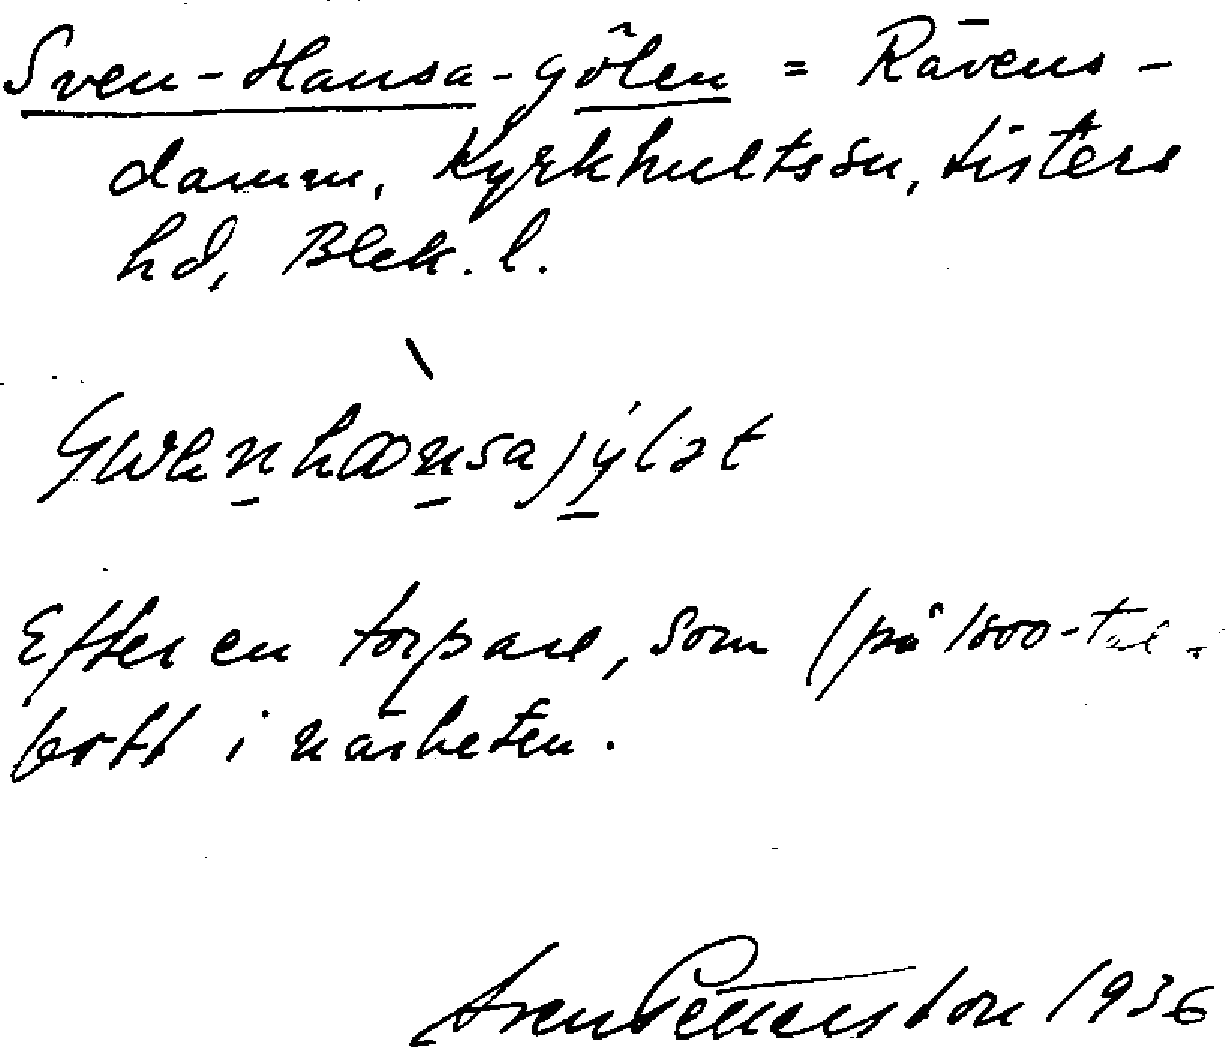 Sven-Hansa-gölen = Rävens-
damm, Kyrkhults sn, Listers
hd, Blek. l.
Efter en torpare, som (på 1800-tal.
bott i närheten.
Sven Pettersson 1936